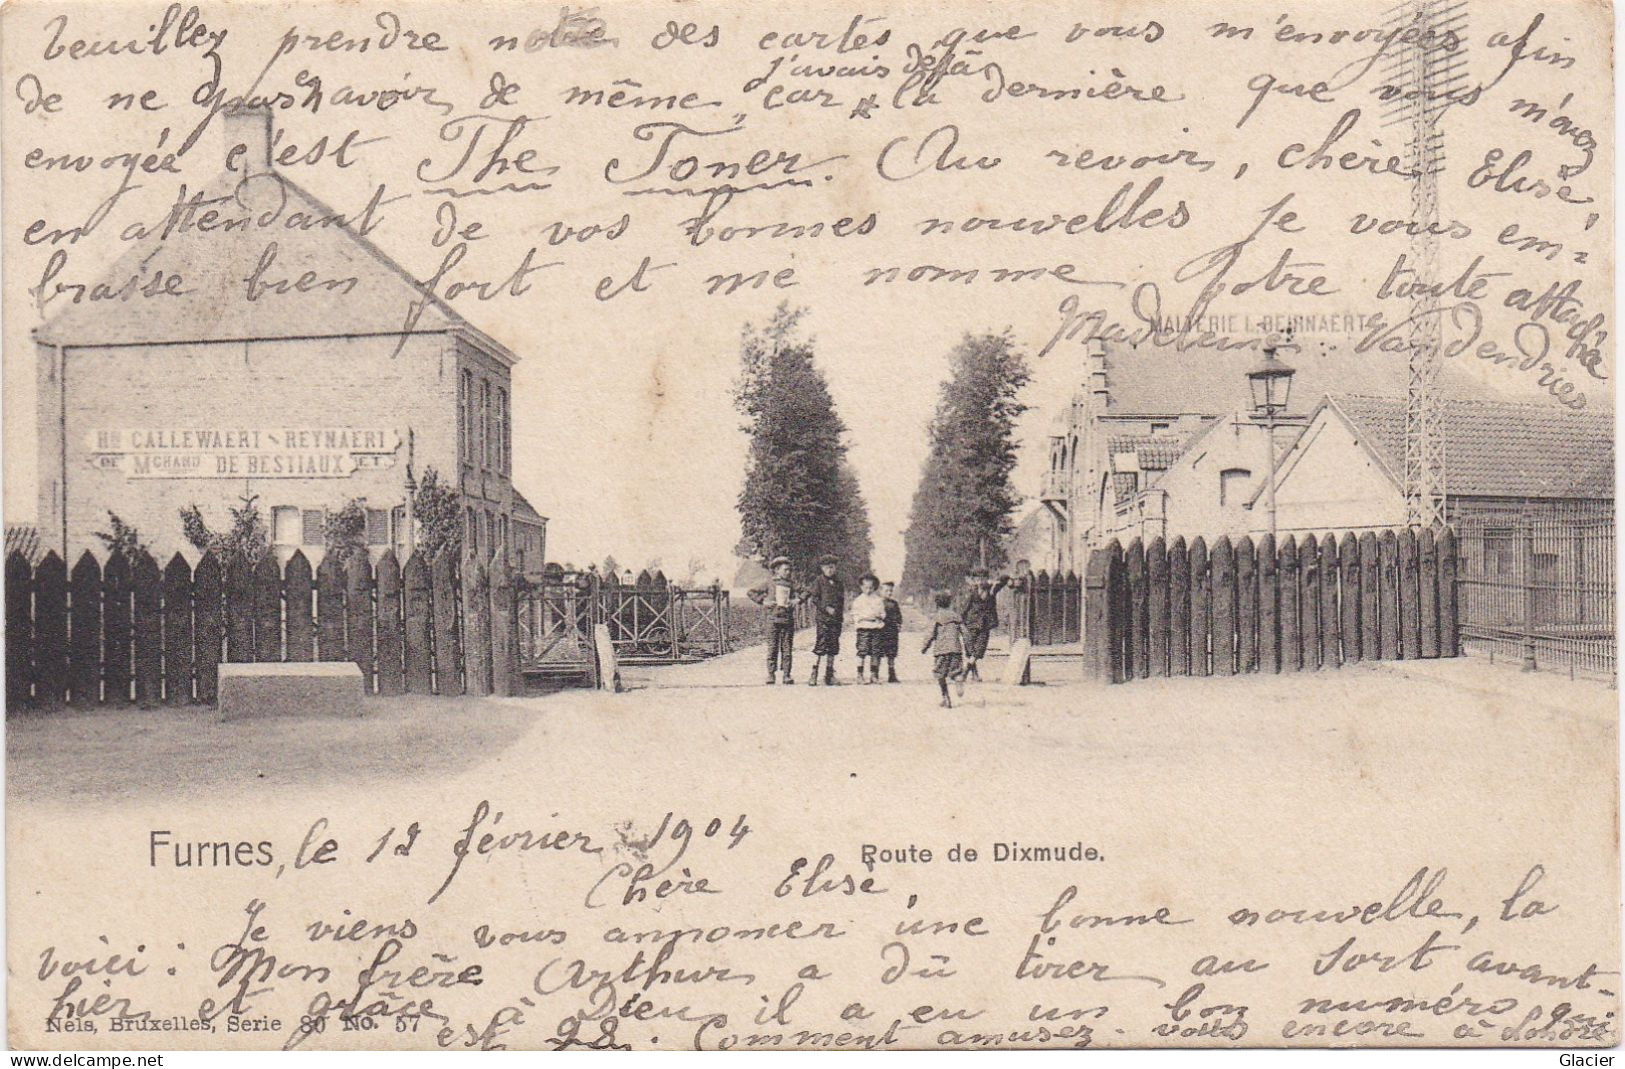 Veuillez prendre note des cartes que vous m'envoyées afin
de ne pas en avoir de même, car j'avais déjà la dernière que vous m'avez
envoyée c'est The Toner. Au revoir, chère Elise,
en attendant de vos bonnes nouvelles je vous em=
brasse bien fort et me nomme Votre toute attachée
Madeleine Vandendries
MALTERIE L. DEIRNAERT
HRI CALLEWAERT-REYNAERT
DE MCHAND DE BESTIAUX ET
Furnes, le 12 février 1904
Route de Dixmude.
Chère Elise,
Je viens vous annoncer une bonne nouvelle, la
voici : Mon frère Arthur a dû tirer au sort avant-
hier et grâce à Dieu il a eu un bon numéro qui
Nels, Bruxelles, Serie 80 No. 57
est 98. Comment amusez-vous encore à Londre
Glacier